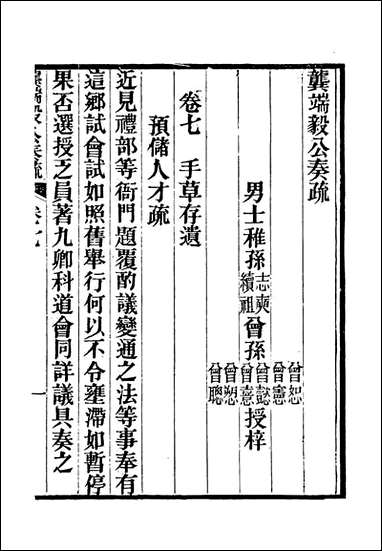 龔端毅公奏疏
男士稚孫志奭續祖曾孫曾恕曾憲曾懿曾憙曾愬曾聰授梓
卷七　手草存遺
預儲人才疏
近見禮部等衙門題覆酌議變通之法等事奉有
這鄉試會試如照舊舉行何以不令壅滯如暫停
果否選授之員著九卿科道會同詳議具奏之
龔端毅公奏疏
卷七
一